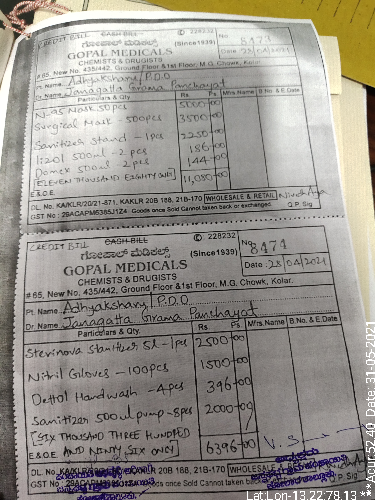 CREDIT BILL CASH BILL © 228232
ಗೋಪಾಲ್ ಮೆಡಿಕಲ್ಸ್ (Since1939) No. 8473
GOPAL MEDICALS Date 28/04/2021
CHEMISTS & DRUGISTS
# 65, New No. 435/442, Ground Floor &1st Floor, M.G. Chowk, Kolar.
Pt. Name Adhyakshary / P.D.O
Dr. Name Janagatta Grama Panchayat
Particulars & Qty Rs Ps Mfrs.Name B.No. & E.Date
N-95 Mask 50pcs 5000=00
Surgical Mask - 500pcs 3500=00
Sanitizer Stand - 1pcs 2250=00
Lizol 500ml - 2 pcs 186=00
Domex 500ml - 2pcs 144=00
[ELEVEN THOUSAND EIGHTY ONLY]
E.&O.E 11,080=00
DL No. KA/KLR/20/21-871, KA/KLR 20B 168, 21B-170 WHOLESALE & RETAIL
GST No : 29ACAPM6385J1Z4 Goods once Sold Cannot taken back or exchanged. Q.P. Sig
CREDIT BILL CASH BILL © 228232
ಗೋಪಾಲ್ ಮೆಡಿಕಲ್ಸ್ (Since1939) No. 8474
GOPAL MEDICALS Date : 28/04/2021
CHEMISTS & DRUGISTS
# 65, New No. 435/442, Ground Floor &1st Floor, M.G. Chowk, Kolar.
Pt. Name Adhyakshary / P.D.O
Dr. Name Janagatta Grama Panchayat
Particulars & Qty Rs Ps Mfrs.Name B.No. & E.Date
Sterinova Stanitizer 5L - 1pcs 2500=00
Nitril Gloves - 100pcs 1500=00
Dettol Handwash - 4pcs 396=00
Sanitizer 500ml pump - 8pcs 2000=00
[SIX THOUSAND THREE HUNDRED
AND NINTY SIX ONLY]
E&O.E 6396=00
DL No. KA/KLR/20/21-871, KA/KLR 20B 168, 21B-170 WHOLESALE & RETAIL
GST No : 29ACAPM6385J1Z4 Goods once Sold Cannot taken back or exchanged. Q.P. Sig
Lat Lon-13 22,78.13 ** Acur 52.40 Date, 31-05-2021